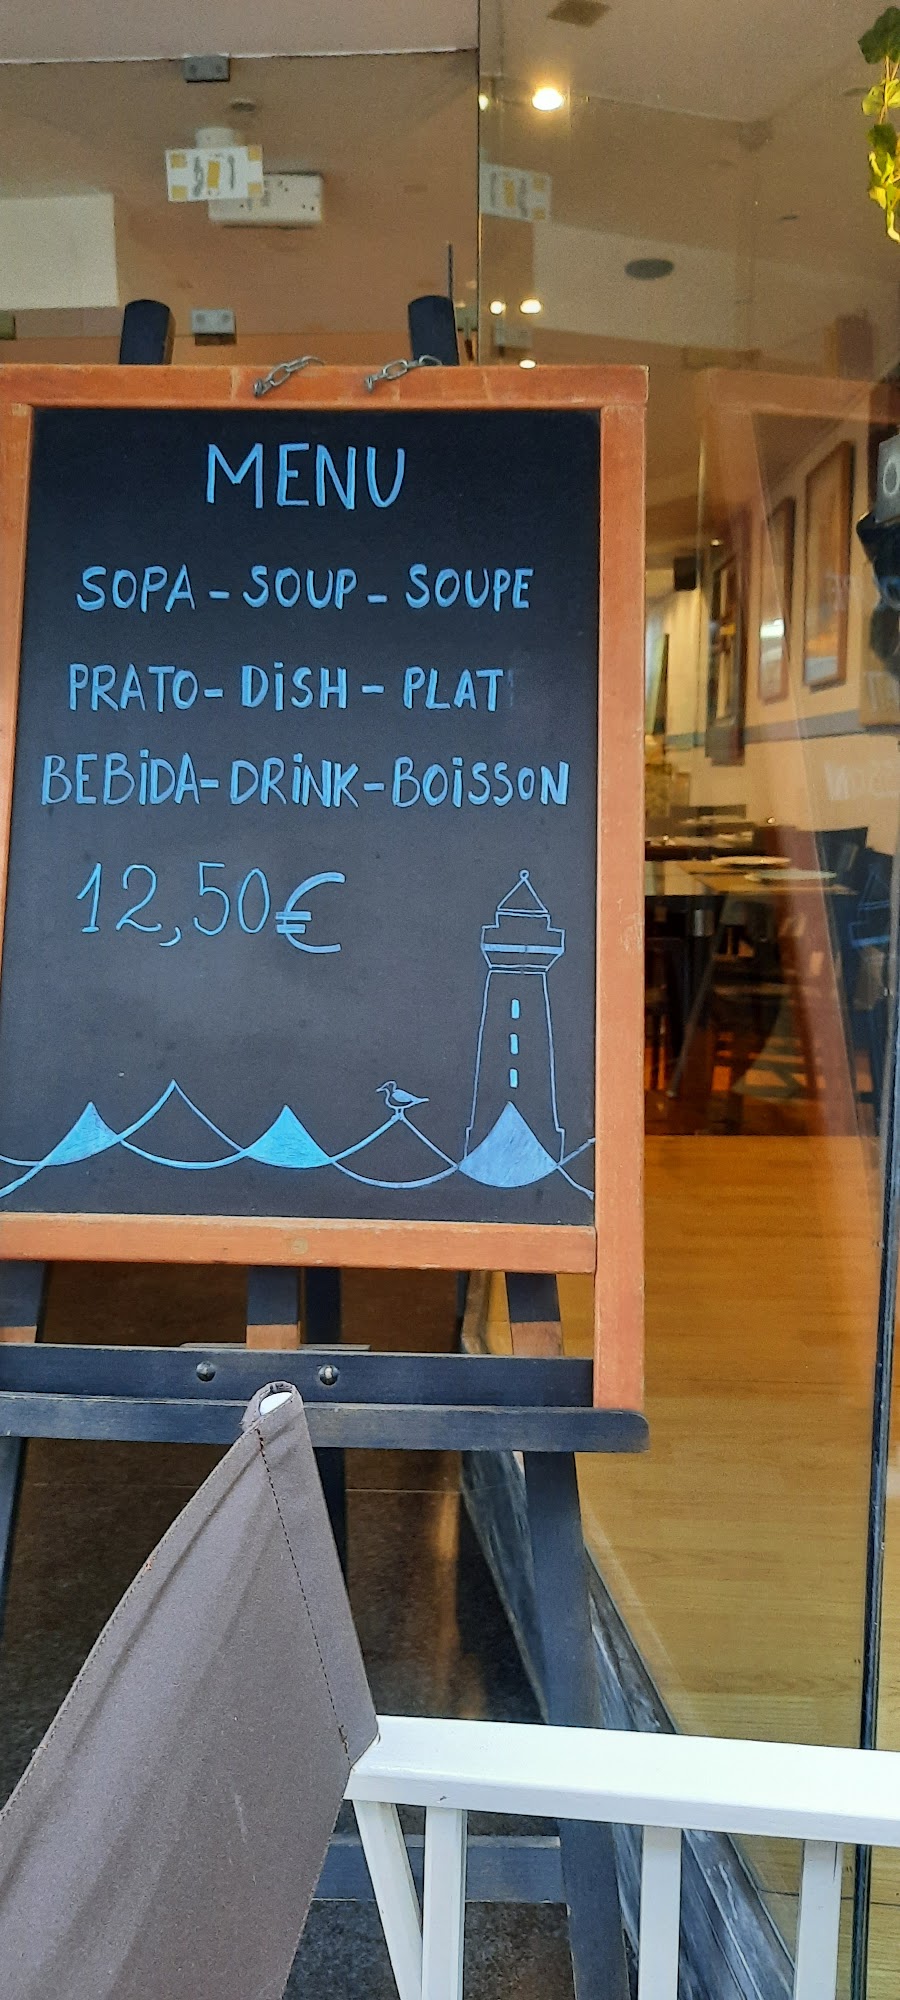 MENU
SOPA - SOUP - SOUPE
PRATO - DiSH - PLAT
BEBiDA - DRiNK - BOiSSON
12,50€